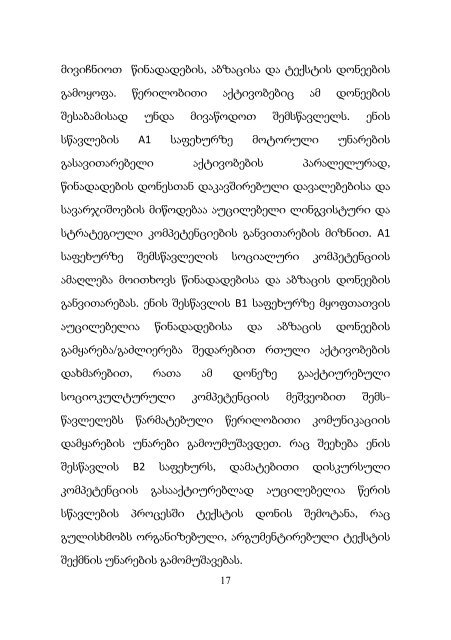 მივიჩნიოთ წინადადების, აბზაცისა და ტექსტის დონეების
გამოყოფა. წერილობითი აქტივობებიც ამ დონეების
შესაბამისად უნდა მივაწოდოთ შემსწავლელს. ენის
სწავლების A1 საფეხურზე მოტორული უნარების
გასავითარებელი აქტივობების პარალელურად,
წინადადების დონესთან დაკავშირებული დავალებებისა და
სავარჯიშოების მიწოდებაა აუცილებელი ლინგვისტური და
სტრატეგიული კომპეტენციების განვითარების მიზნით. A1
საფეხურზე შემსწავლელის სოციალური კომპეტენციის
ამაღლება მოითხოვს წინადადებისა და აბზაცის დონეების
განვითარებას. ენის შესწავლის B1 საფეხურზე მყოფთათვის
აუცილებელია წინადადებისა და აბზაცის დონეების
გამყარება/გაძლიერება შედარებით რთული აქტივობების
დახმარებით, რათა ამ დონეზე გააქტიურებული
სოციოკულტურული კომპეტენციის მეშვეობით შემს-
წავლელებს წარმატებული წერილობითი კომუნიკაციის
დამყარების უნარები გამოუმუშავდეთ. რაც შეეხება ენის
შესწავლის B2 საფეხურს, დამატებითი დისკურსული
კომპეტენციის გასააქტიურებლად აუცილებელია წერის
სწავლების პროცესში ტექსტის დონის შემოტანა, რაც
გულისხმობს ორგანიზებული, არგუმენტირებული ტექსტის
შექმნის უნარების გამომუშავებას.
17